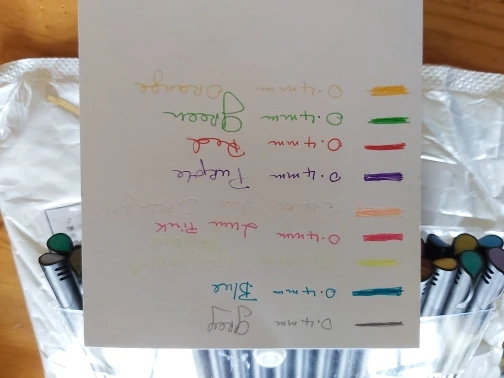 0.4mm grey
0.4mm Blue
0.4mm Lum Pink
0.4mm Purple
0.4mm Red
0.4mm green
0.4mm Orange